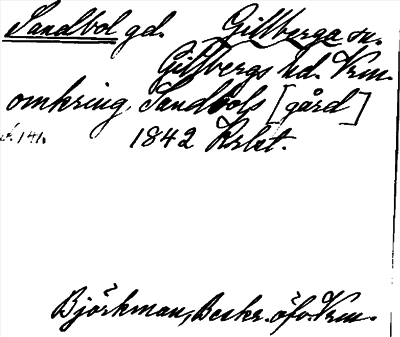 Sandbol gd. Gillberga sn.
Gillbergs hd. Vrm.
omkring Sandbols [gård]
s. 141. 1842 Krlst.
Björkman, Beskr. öfv. Vrm.